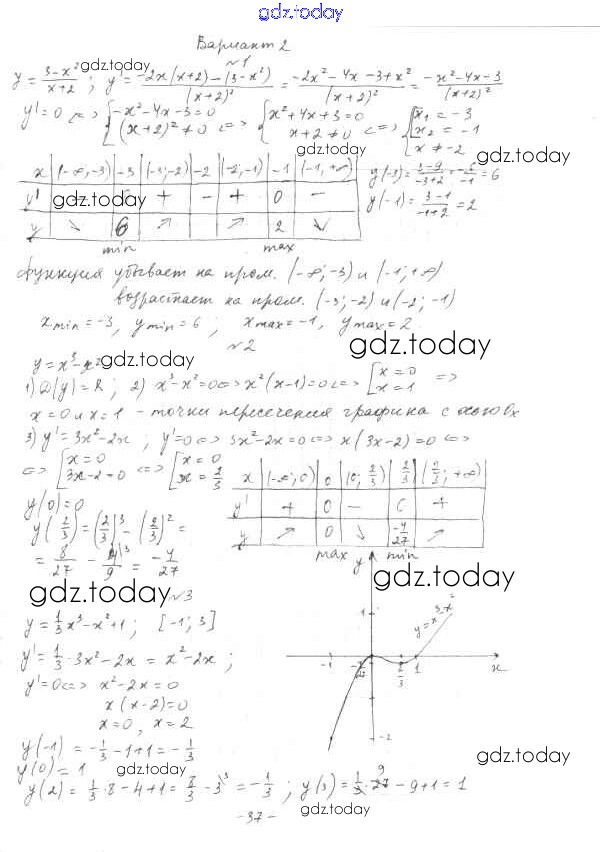 gdz.today
Вариант 2
№1
y = (3-x²)/(x+2) ; y' = (-2x(x+2)-(3-x²))/(x+2)² = (-2x²-4x-3+x²)/(x+2)² = (-x²-4x-3)/(x+2)²
gdz.today
y'=0 <=> {-x²-4x-3=0 (x+2)²≠0 <=> {x²+4x+3=0 x+2≠0 <=> {[x₁=-3 x₂=-1 x≠-2
gdz.today
gdz.today
x | (-∞;-3) | -3 | (-3;-2) | -2 | (-2;-1) | -1 | (-1;+∞)
y' | + | - | + | 0 | -
gdz.today
y | ↘ | 6 | ↗ | ↗ | 2 | ↘
min max
y(-3) = (3-9)/(-3+2) = -6/-1 = 6
y(-1) = (3-1)/(-1+2) = 2
функция убывает на пром. (-∞;-3) и (-1;+∞)
возрастает на пром. (-3;-2) и (-2;-1)
x min = -3, y min = 6 ; x max = -1, y max = 2
№2
gdz.today
y = x³-x²
gdz.today
1) D(y)=R ; 2) x³-x²=0 <=> x²(x-1)=0 <=> [x=0 x=1 =>
x=0 и x=1 - точки пересечения графика с осью Ox
3) y'=3x²-2x ; y'=0 <=> 3x²-2x=0 <=> x(3x-2)=0 <=>
<=> [x=0 3x-2=0 <=> [x=0 x=2/3
x | (-∞;0) | 0 | (0;2/3) | 2/3 | (2/3;+∞)
y' | + | 0 | - | 0 | +
y | ↗ | 0 | ↘ | -4/27 | ↗
max min
y(0)=0
y(2/3) = (2/3)³ - (2/3)² =
= 8/27 - 4/9 |³ = -4/27
gdz.today
gdz.today
y
1
y=x³-x²
-1
2/3
1
x
-2
№3
y = 1/3 x³-x²+1 ; [-1;3]
y' = 1/3 · 3x²-2x = x²-2x ;
y'=0 <=> x²-2x=0
x(x-2)=0
x=0, x=2
y(-1) = -1/3-1+1 = -1/3
gdz.today
y(0) = 1
gdz.today
y(2) = 1/3·8-4+1 = 8/3-3 |³ = -1/3 ; y(3) = 1/3·27 9 -9+1 = 1
gdz.today
-37-